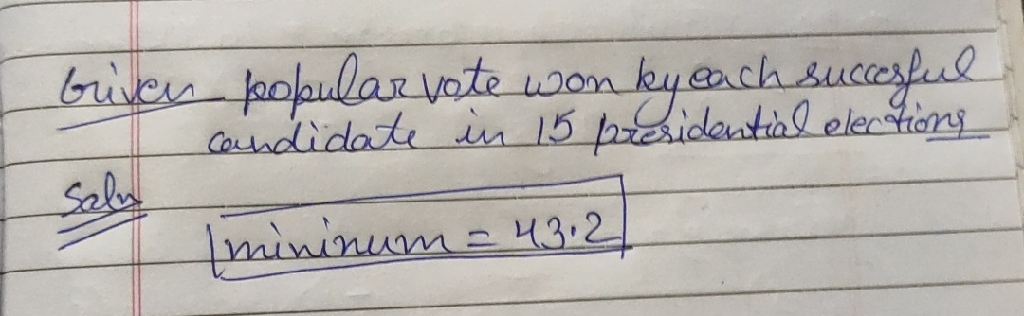 Given popular vote won by each succesful
candidate in 15 presidential elections
Soln
mininum = 43.2